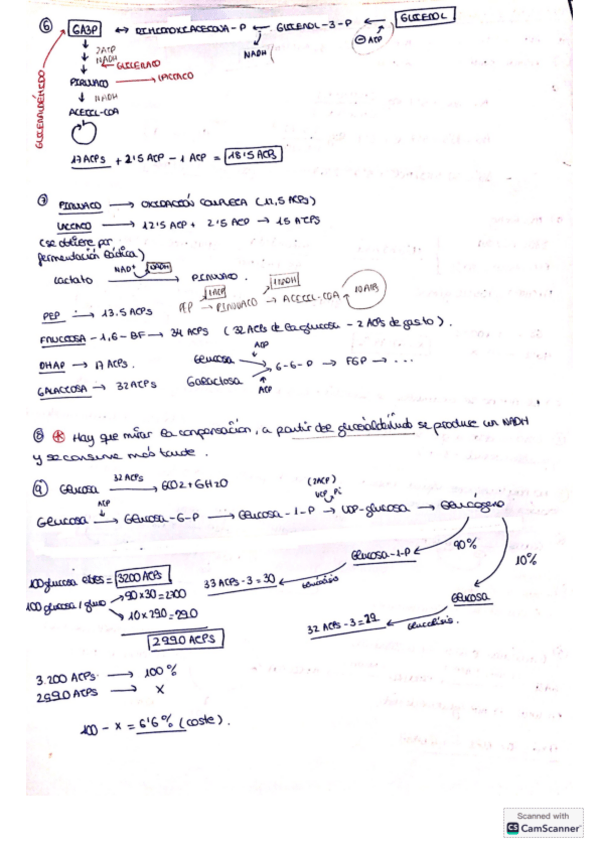 ⑥ GA3P ↔ DIHIDROXIACETONA-P ← GLICEROL-3-P ← GLICEROL
NADH ⊖ ATP
2ATP
NADH
GLICERATO
GLICERALDEHIDO
PIRUVATO → LACTATO
↓ NADH
ACETIL-COA
17 ATPs + 2'5 ATP - 1 ATP = 18'5 ATPs
⑦ PIRUVATO → OXIDACIÓN COMPLETA (12,5 ATPs)
LACTATO → 12'5 ATP + 2'5 ATP → 15 ATPs
(se obtiene por
fermentación láctica)
NAD+ NADH
Lactato → PIRUVATO.
1ATP 1NADH
PEP → 13.5 ATPs PEP → PIRUVATO → ACETIL-COA 10 ATPs
FRUCTOSA-1,6-BF → 34 ATPs (32 ATPs de la glucosa - 2 ATPs de gasto).
ATP
DHAP → 17 ATPs. Glucosa → G-6-P → F6P → ...
GALACTOSA → 32 ATPs Galactosa
ATP
⑧ * Hay que mirar la compensación, a partir del gliceraldehído se produce un NADH
y se consume más tarde.
⑨ Glucosa 32 ATPs → 6CO2 + 6H2O
ATP (2ATP)
UTP Pi
Glucosa → Glucosa-6-P → Glucosa-1-P → UDP-glucosa → Glucógeno
90% 10%
Glucosa-1-P
100 glucosa libres = 3200 ATPs 33 ATPs - 3 = 30 glucólisis
100 glucosa / gluco → 90 x 30 = 2700
→ 10 x 29 = 290
Glucosa
32 ATPs - 3 = 29 glucólisis.
2990 ATPs
3.200 ATPs → 100%
2990 ATPs → X
100 - X = 6'6% (coste).
Scanned with
CS CamScanner